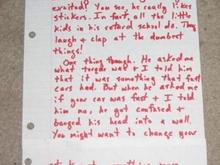 excited? You see, he really likes
stickers. In fact, all the little
kids in his retard school do. They
laugh & clap at the dumbest
things!
One thing though. He asked me
what torque was. I told him
that it was something that fast
cars had. But when he asked me
if your car was fast & I told
him no, he got confused &
banged his head into a wall.
You might want to change your